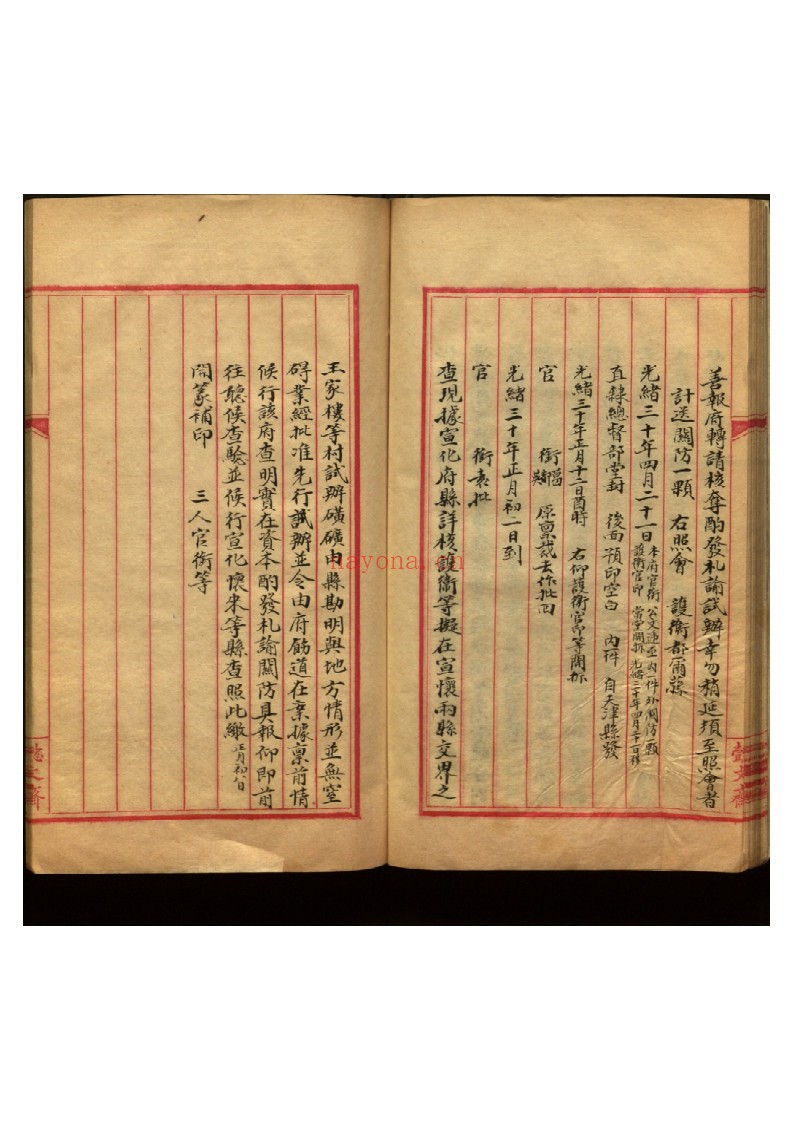 善報府轉請核奪酌發札諭試辦幸勿稍延須至照會者
計送關防一顆 右照會 護衛都爾蘇
光緒三十年四月二十一日 本府官銜 公文連並內一件外關防一顆
護衛官印 當堂開拆 光緒三十年四月二十一日移
直隸總督部堂封 後面預印空白 內拜 自天津縣發
光緒三十年正月十二日酉時 右仰護衛官印等開拆
官 銜 原稟裁去作批回
光緒三十年正月初二日到
官 銜袁批
查現據宣化府縣詳核護衛等擬在宣懷兩縣交界之
王家樓等村試辦磺礦由縣勘明與地方情形並無窒
碍業經批准先行試辦並令由府飭道在案據稟前情
候行該府查明實在資本酌發札諭關防具報仰即前
往聽候查驗並候行宣化懷來等縣查照此繳 正月初八日
開篆補印 三人官銜等
懿文齋
懿文齋
nayona.cn